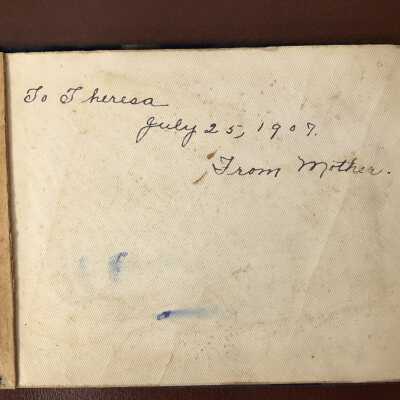 To Theresa
July 25, 1907.
From Mother.